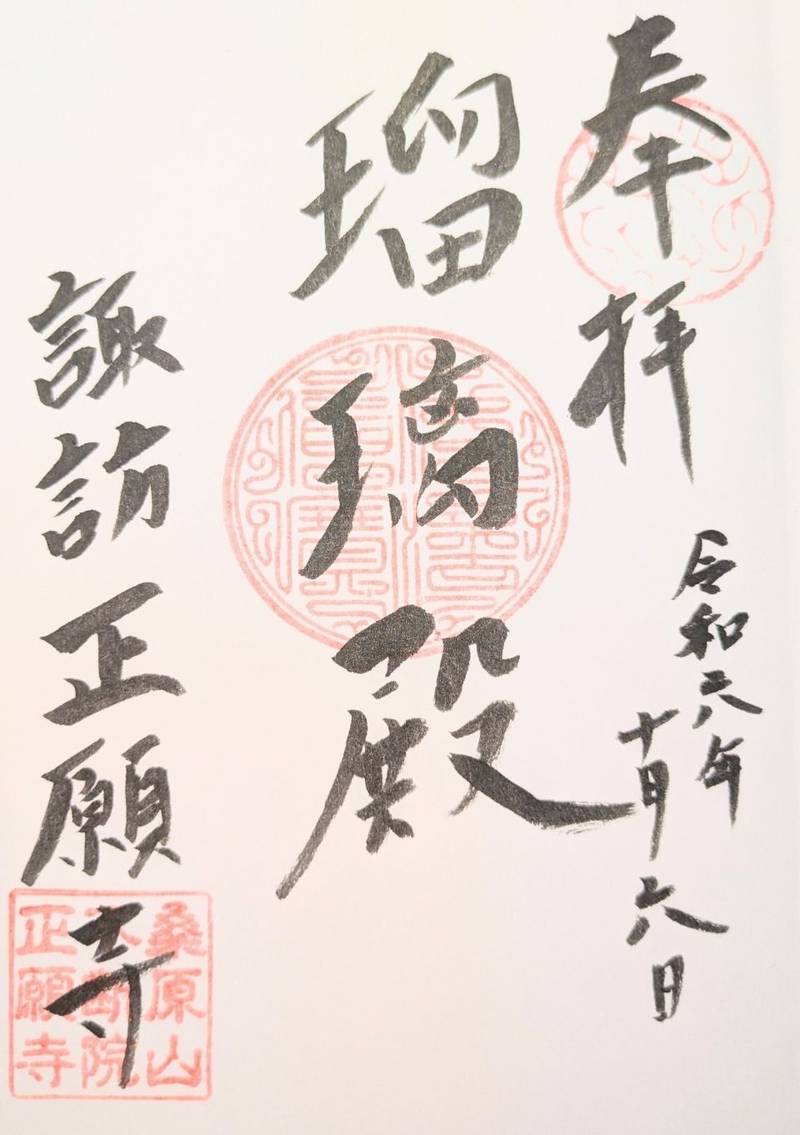 奉拝
令和六年
十月六日
瑠璃殿
諏訪正願寺
桑原山
断院
正願寺